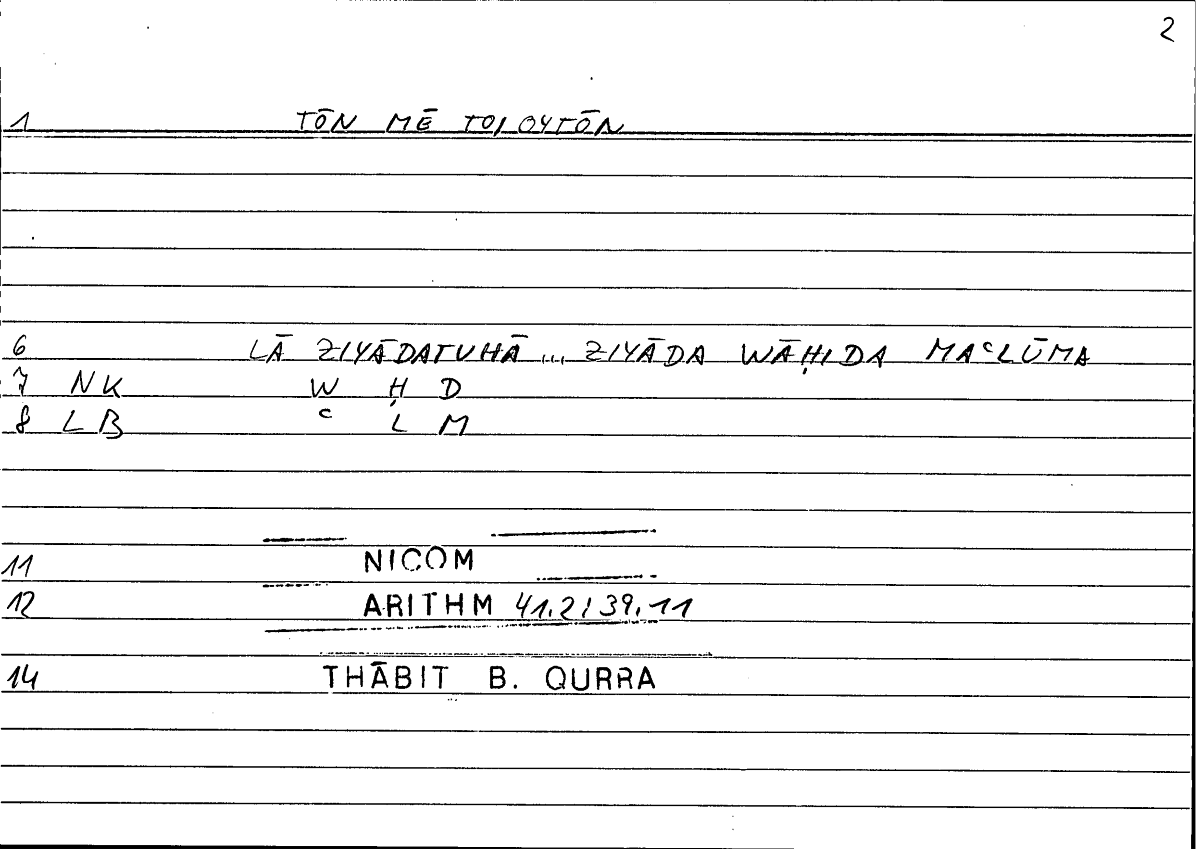 2
1 TŌN MĒ TOIOYTŌN
6 LĀ ZIYĀDATUHĀ ... ZIYĀDA WĀḤIDA MAᶜLŪMA
7 NK W Ḥ D
8 LB ᶜ L M
11 NICOM
12 ARITHM 41.2/39.11
14 THĀBIT B. QURRA